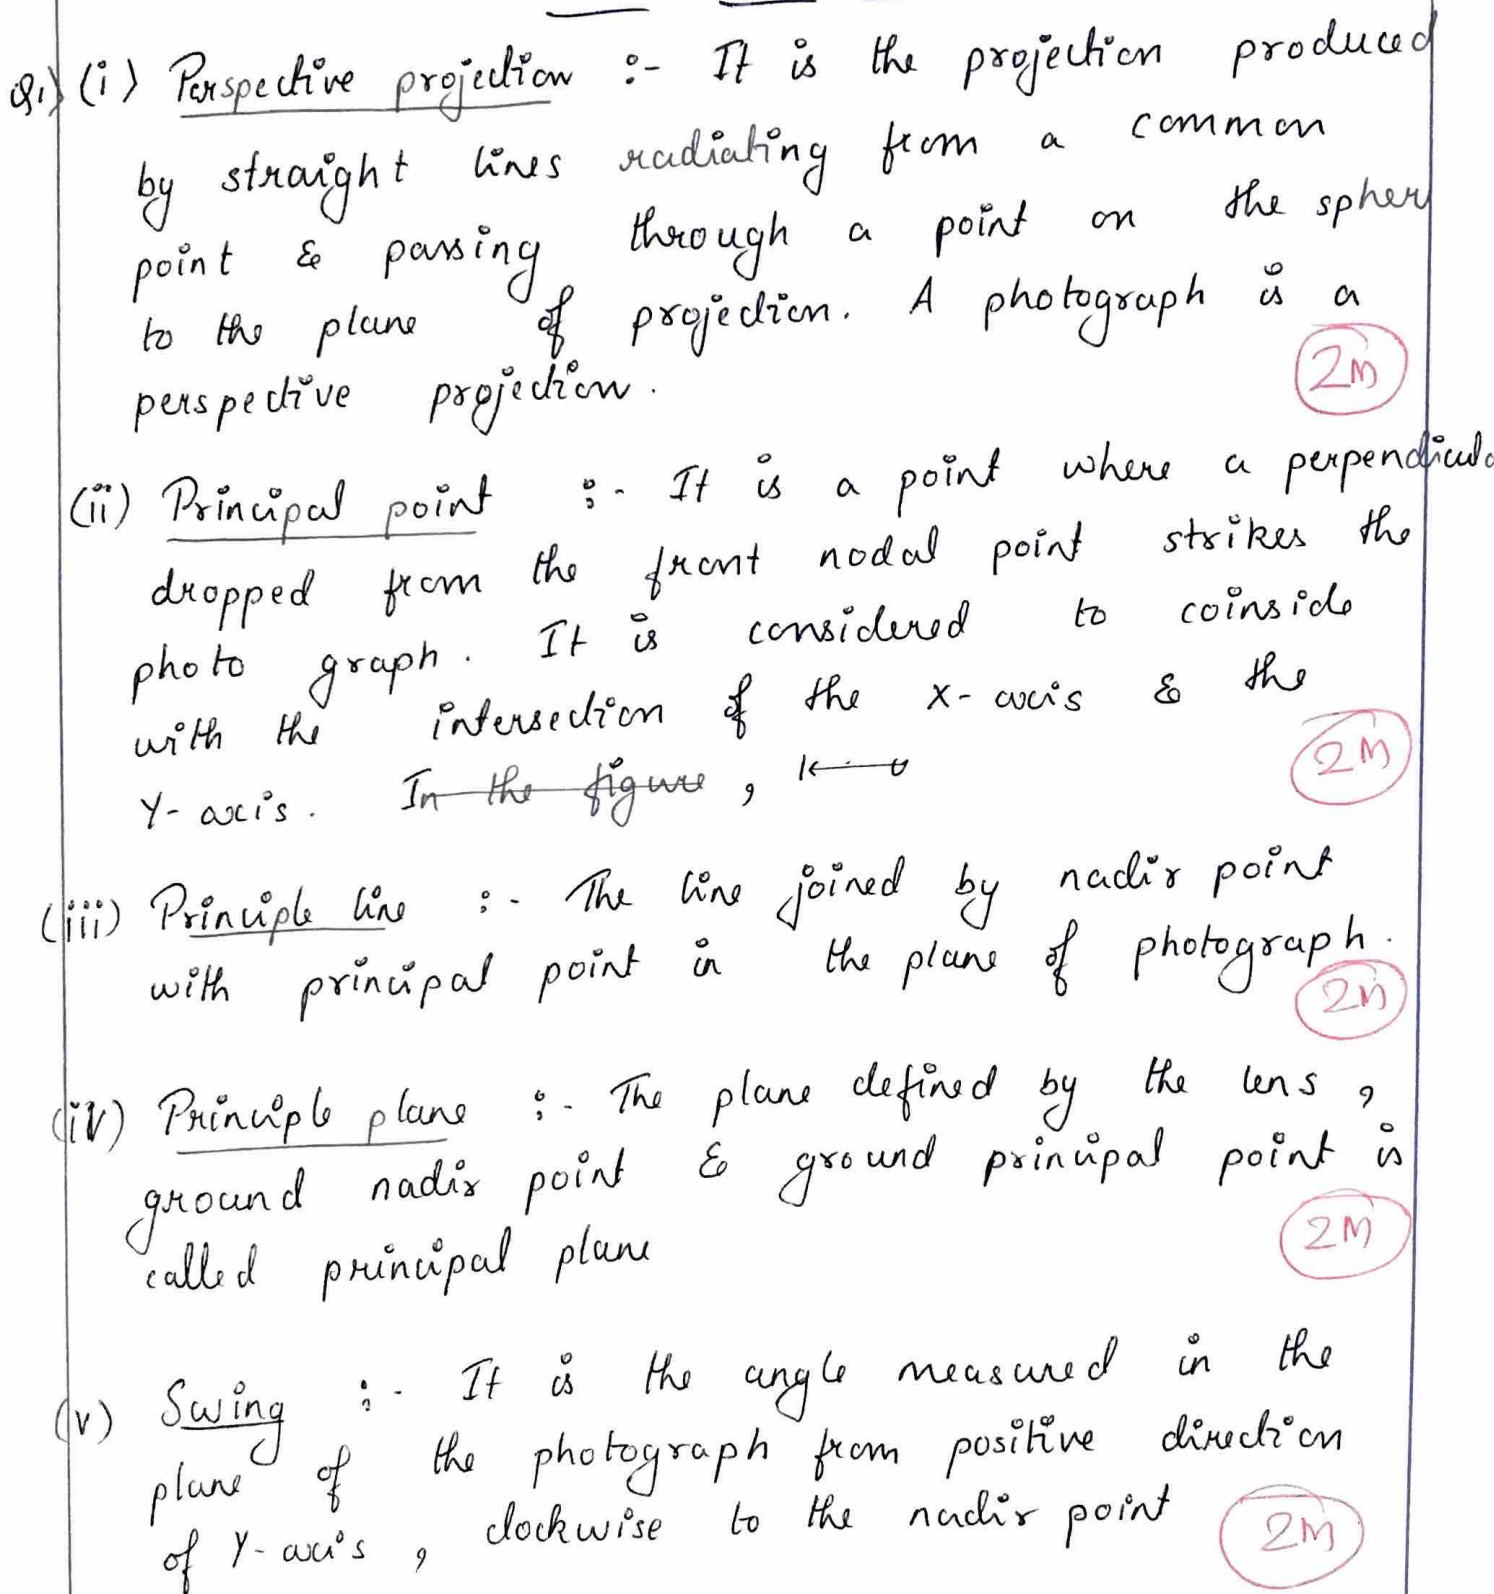 Q1) (i) Perspective projection :- It is the projection produced
by straight lines radiating from a common
point & passing through a point on the spher
to the plane of projection. A photograph is a
2M
perspective projection.
(ii) Principal point :- It is a point where a perpendicula
dropped from the front nodal point strikes the
photo graph. It is considered to coinside
with the intersection of the X-axis & the
2M
Y-axis. In the figure,
(iii) Principle line :- The line joined by nadir point
with principal point in the plane of photograph.
2M
(iv) Principle plane :- The plane defined by the lens,
ground nadir point & ground principal point is
2M
called principal plane
(v) Swing :- It is the angle measured in the
plane of the photograph from positive direction
of Y-axis, clockwise to the nadir point
2M